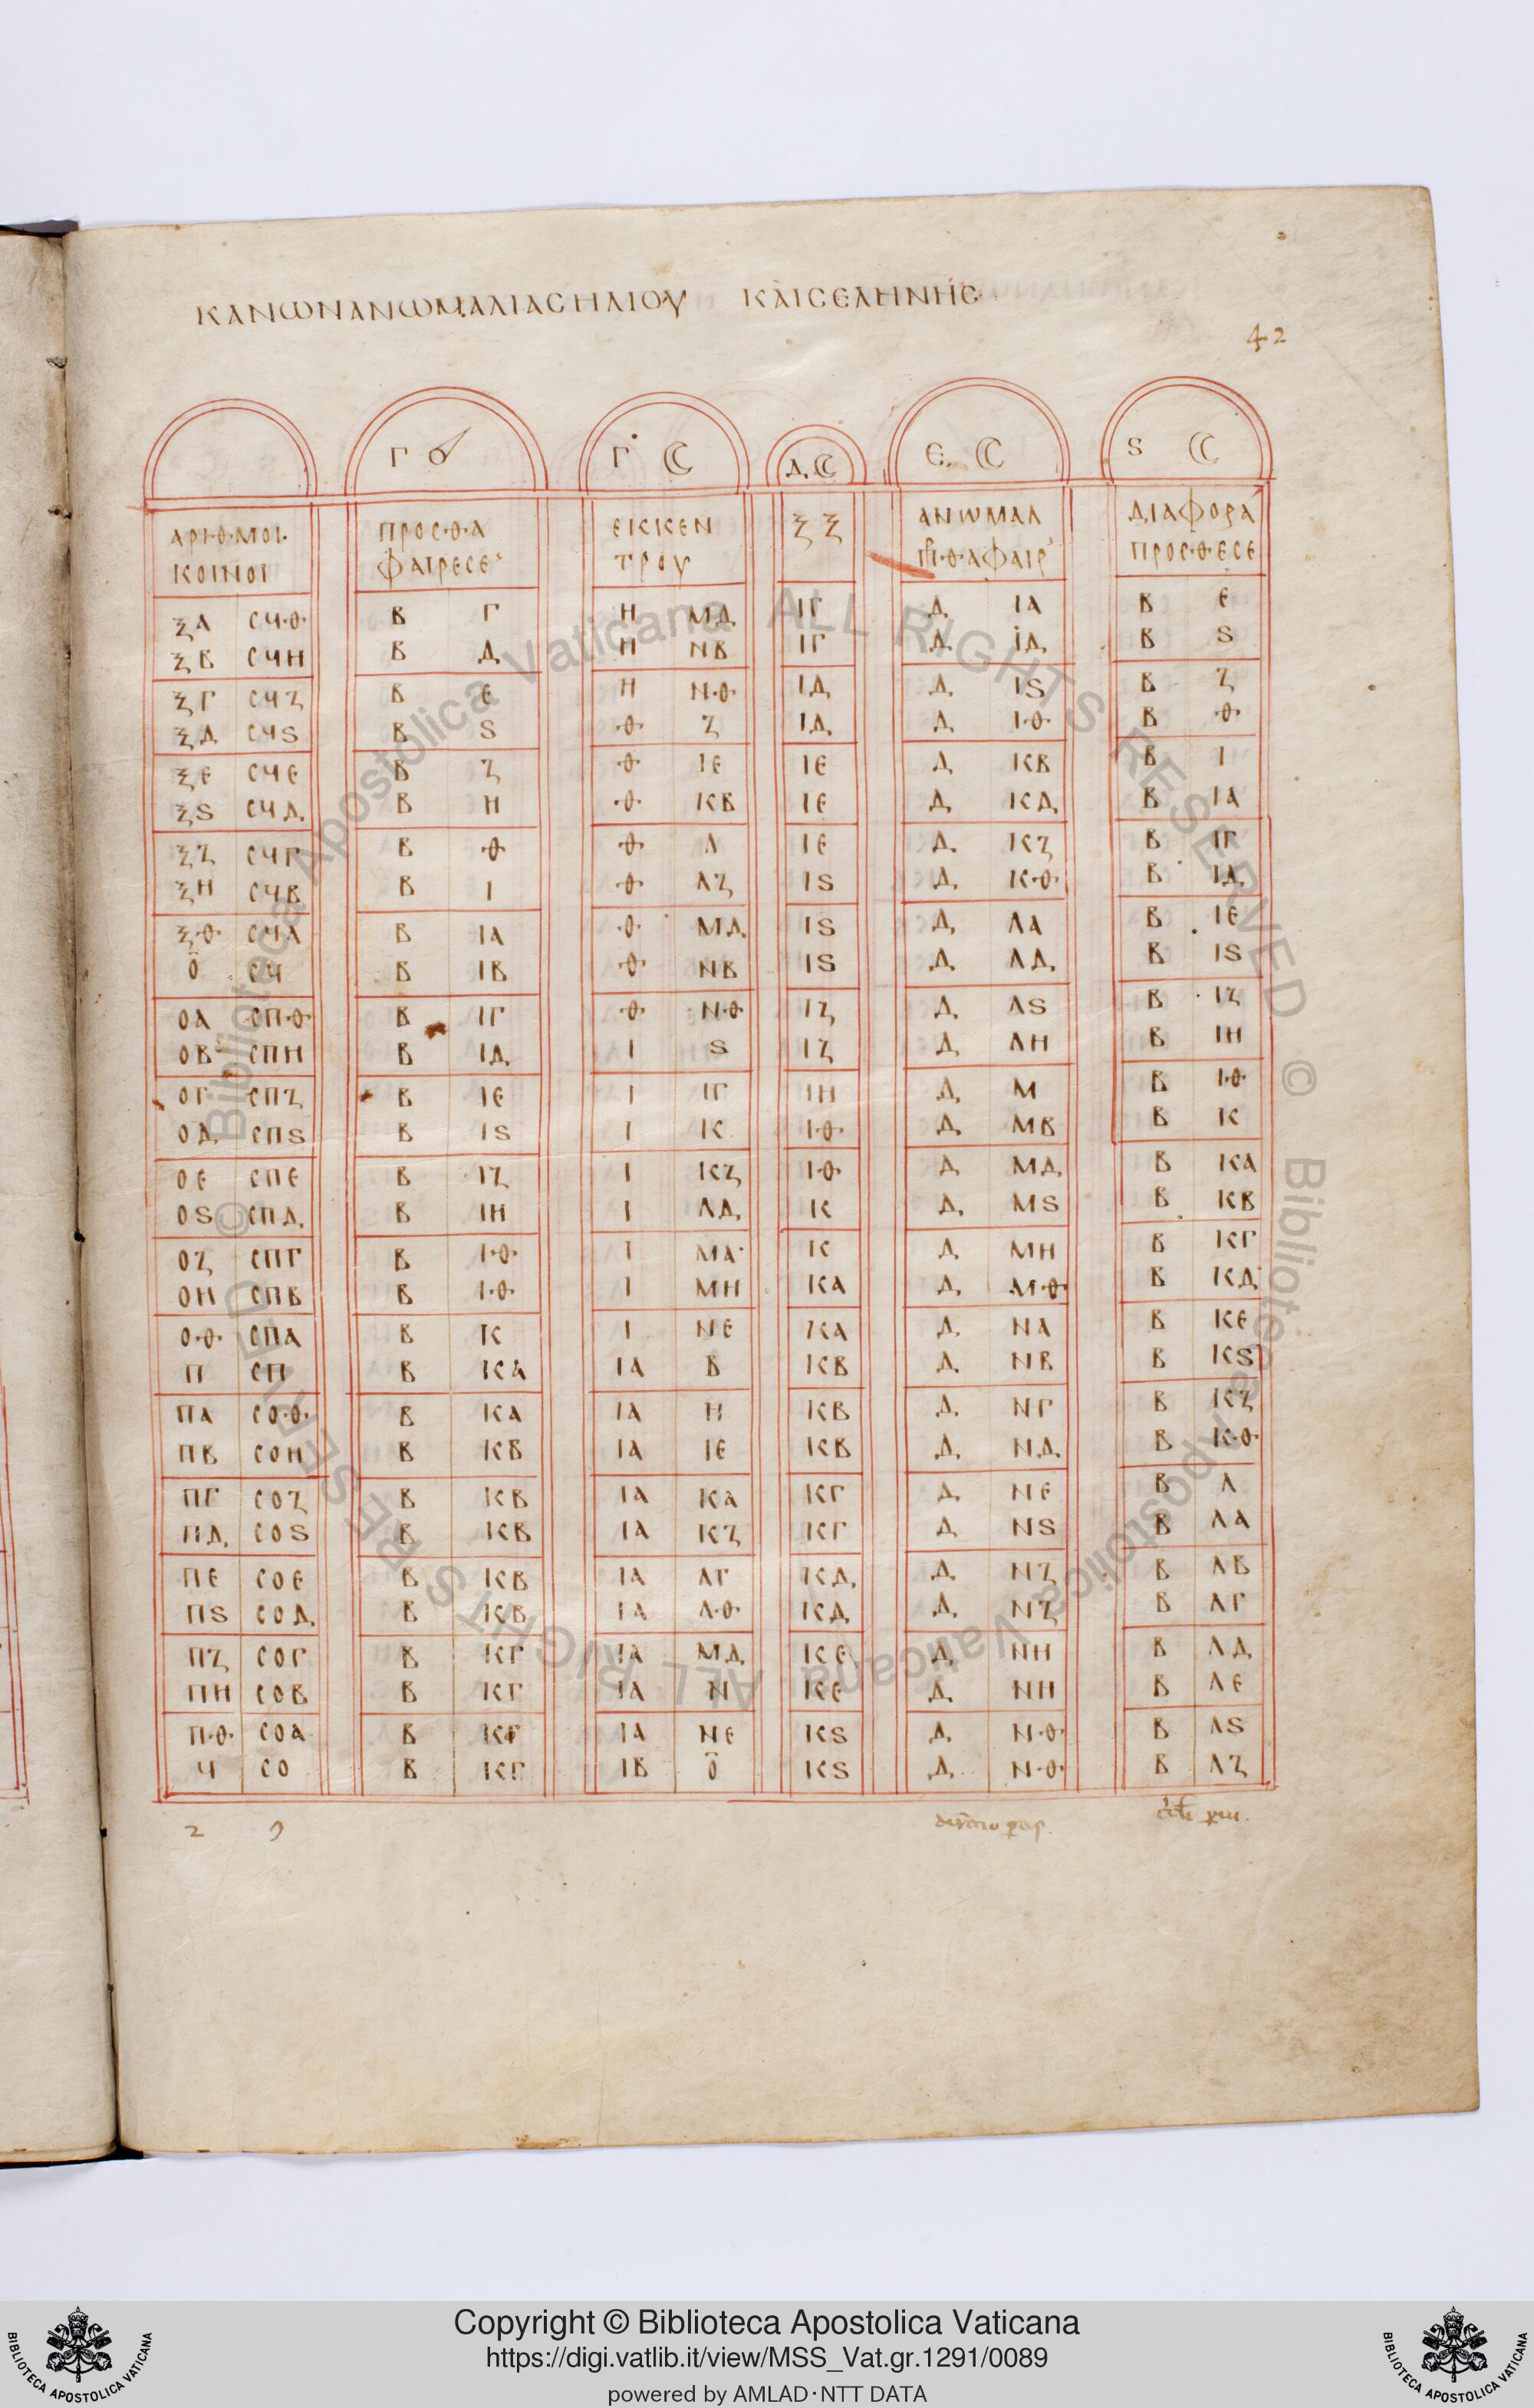 ΚΑΝΩΝ ΑΝΩΜΑΛΙΑС ΗΛΙΟΥ ΚΑΙ СΕΛΗΝΗС
42
Γ Γ Δ Ε Ϛ
ΑΡΙΘΜΟΙ ΠΡΟСΘΑ ΕΚΚΕΝ ξξ ΑΝΩΜΑΛ ΔΙΑΦΟΡΑ
ΚΟΙΝΟΙ ΦΑΙΡΕСΕ ΤΡΟΥ ΘΑΦΑΙΡ ΠΡΟСΘΕСΕ
ξΑ СЧΘ Β Γ Η ΜΔ ΙΓ Δ ΙΑ Β Ε
ξΒ СЧΗ Β Δ Η ΝΒ ΙΓ Δ ΙΔ Β Ϛ
ξΓ СЧΖ Β Ε Η ΝΘ ΙΔ Δ ΙϚ Β Ζ
ξΔ СЧϚ Β Ϛ Θ Ζ ΙΔ Δ ΙΘ Β Θ
ξΕ СЧΕ Β Ζ Θ ΙΕ ΙΕ Δ ΚΒ Β Ι
ξϚ СЧΔ Β Η Θ ΚΒ ΙΕ Δ ΚΔ Β ΙΑ
ξΖ СЧΓ Β Θ Θ Λ ΙΕ Δ ΚΖ Β ΙΓ
ξΗ СЧΒ Β Ι Θ ΛΖ ΙϚ Δ ΚΘ Β ΙΔ
ξΘ СЧΑ Β ΙΑ Θ ΜΔ ΙϚ Δ ΛΑ Β ΙΕ
Ο СЧ Β ΙΒ Θ ΝΒ ΙϚ Δ ΛΔ Β ΙϚ
ΟΑ СΠΘ Β ΙΓ Θ ΝΘ ΙΖ Δ ΛϚ Β ΙΖ
ΟΒ СΠΗ Β ΙΔ Ι Ϛ ΙΖ Δ ΛΗ Β ΙΗ
ΟΓ СΠΖ Β ΙΕ Ι ΙΓ ΙΗ Δ Μ Β ΙΘ
ΟΔ СΠϚ Β ΙϚ Ι Κ ΙΘ Δ ΜΒ Β Κ
ΟΕ СΠΕ Β ΙΖ Ι ΚΖ ΙΘ Δ ΜΔ Β ΚΑ
ΟϚ СΠΔ Β ΙΗ Ι ΛΔ Κ Δ ΜϚ Β ΚΒ
ΟΖ СΠΓ Β ΙΘ Ι ΜΑ Κ Δ ΜΗ Β ΚΓ
ΟΗ СΠΒ Β ΙΘ Ι ΜΗ ΚΑ Δ ΜΘ Β ΚΔ
ΟΘ СΠΑ Β Κ Ι ΝΕ ΚΑ Δ ΝΑ Β ΚΕ
Π СΠ Β ΚΑ ΙΑ Β ΚΒ Δ ΝΒ Β ΚϚ
ΠΑ СΟΘ Β ΚΑ ΙΑ Η ΚΒ Δ ΝΓ Β ΚΖ
ΠΒ СΟΗ Β ΚΒ ΙΑ ΙΕ ΚΒ Δ ΝΔ Β ΚΘ
ΠΓ СΟΖ Β ΚΒ ΙΑ ΚΑ ΚΓ Δ ΝΕ Β Λ
ΠΔ СΟϚ Β ΚΒ ΙΑ ΚΖ ΚΓ Δ ΝϚ Β ΛΑ
ΠΕ СΟΕ Β ΚΒ ΙΑ ΛΓ ΚΔ Δ ΝΖ Β ΛΒ
ΠϚ СΟΔ Β ΚΒ ΙΑ ΛΘ ΚΔ Δ ΝΖ Β ΛΓ
ΠΖ СΟΓ Β ΚΓ ΙΑ ΜΔ ΚΕ Δ ΝΗ Β ΛΔ
ΠΗ СΟΒ Β ΚΓ ΙΑ Ν ΚΕ Δ ΝΗ Β ΛΕ
ΠΘ СΟΑ Β ΚΓ ΙΑ ΝΕ ΚϚ Δ ΝΘ Β ΛϚ
Ч СΟ Β ΚΓ ΙΒ Ο ΚϚ Δ ΝΘ Β ΛΖ
© Biblioteca Apostolica Vaticana ALL RIGHTS RESERVED © Biblioteca Apostolica Vaticana ALL RIGHTS RESERVED
Copyright © Biblioteca Apostolica Vaticana
https://digi.vatlib.it/view/MSS_Vat.gr.1291/0089
powered by AMLAD·NTT DATA
BIBLIOTECA APOSTOLICA VATICANA
BIBLIOTECA APOSTOLICA VATICANA